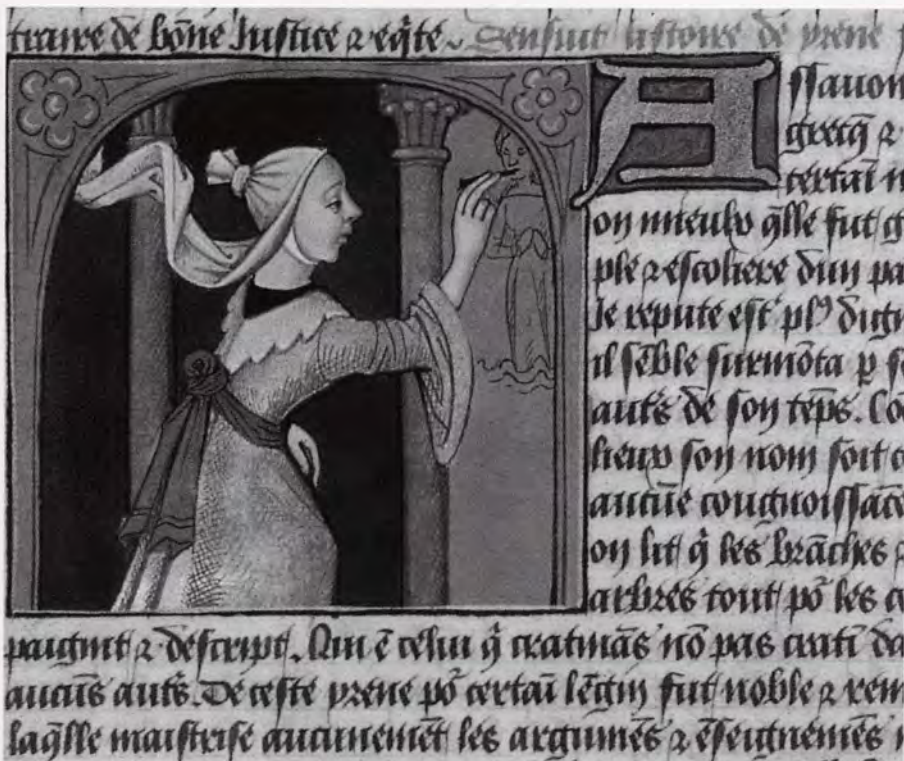 traire de bõne Justice ⁊ eq̃te. Sensuit listoire de yrene
A
ssauon
grecq̃ ⁊
certaĩ n
on mieulx q̃lle fut g
ple ⁊ escoliere dun pa
Je repute est plꝰ dign
il sẽble surmõta p̱ s
autſ̃ de son tẽps. Co
lieux son nom soit c
aucũe congnoissãce
on lit q̃ les brãches ⁊
arbres tout põ les c
paignit ⁊ descript. Qui ẽ celui q̃ cratinãs nõ pas crati da
aucũs autſ̃. De ceste yrene põ certaĩ lẽgin fut noble ⁊ rem
laq̃lle maistrise aucunemẽt les argumẽs ⁊ ẽseignemẽs